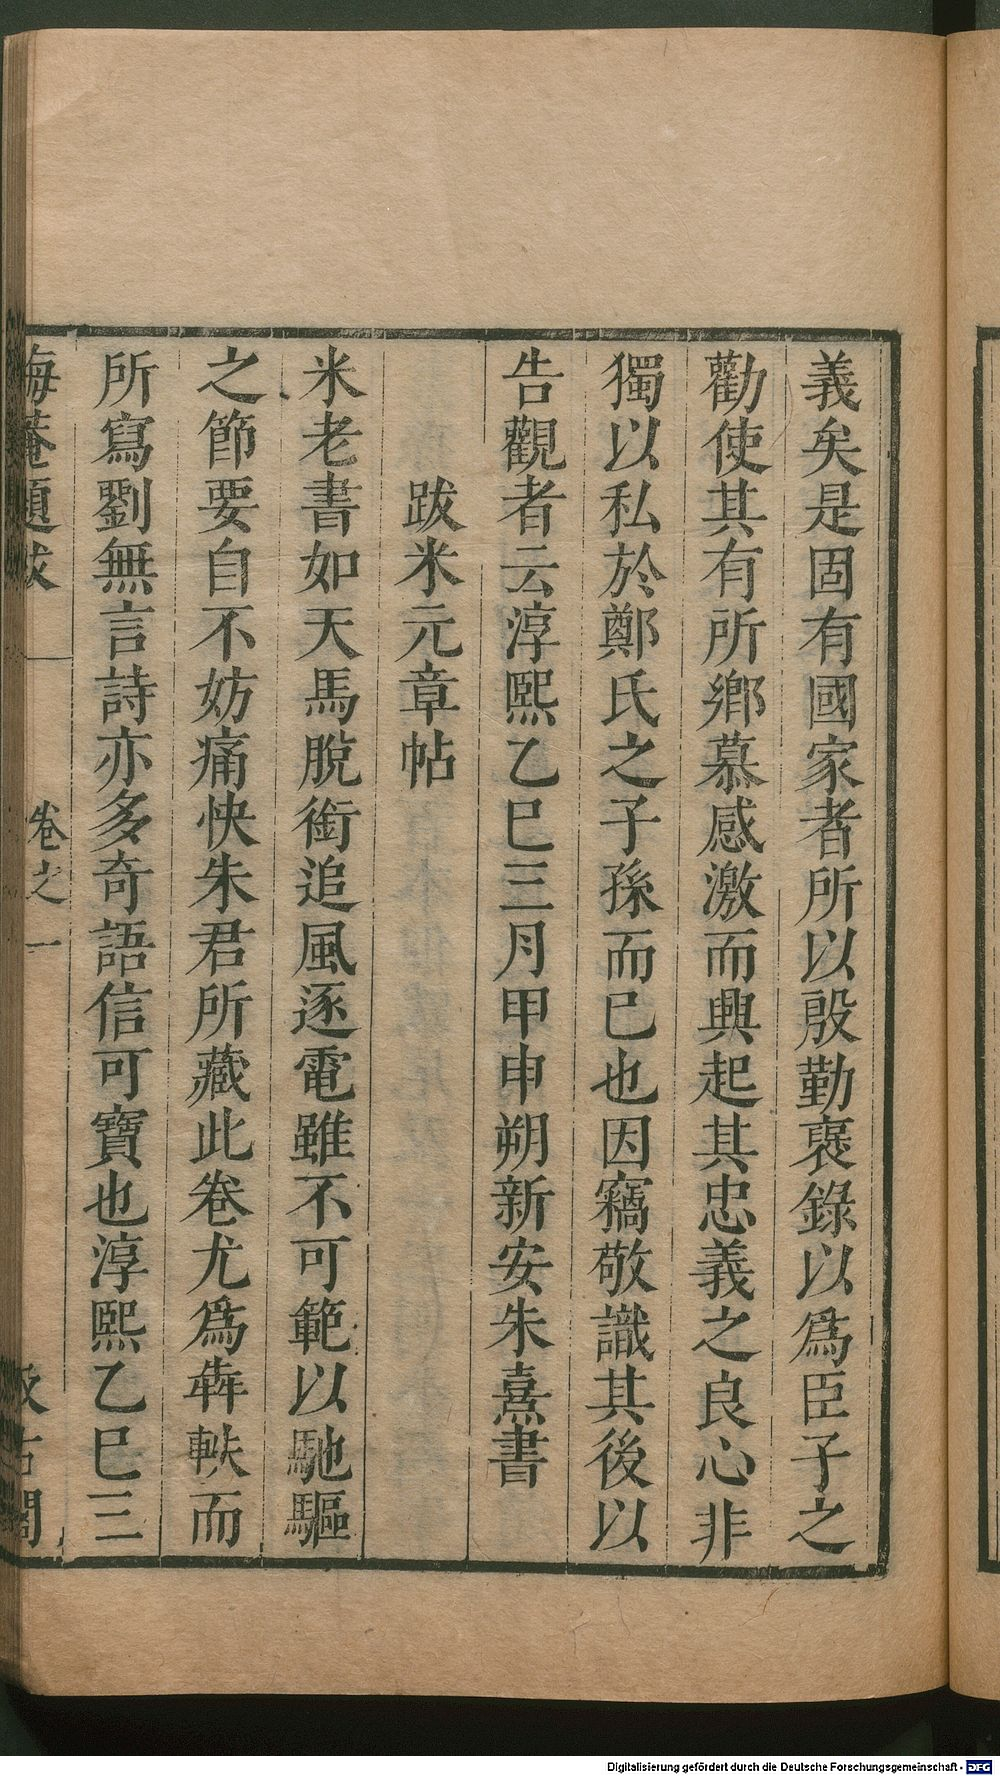 義矣是固有國家者所以殷勤襃錄以爲臣子之
勸使其有所鄉慕感激而興起其忠義之良心非
獨以私於鄭氏之子孫而已也因竊敬識其後以
告觀者云淳熙乙巳三月甲申朔新安朱熹書
跋米元章帖
米老書如天馬脫銜追風逐電雖不可範以馳驅
之節要自不妨痛快朱君所藏此卷尤爲犇軼而
所寫劉無言詩亦多奇語信可寶也淳熙乙巳三
晦菴題跋 卷之一 汲古閣
Digitalisierung gefördert durch die Deutsche Forschungsgemeinschaft - DFG